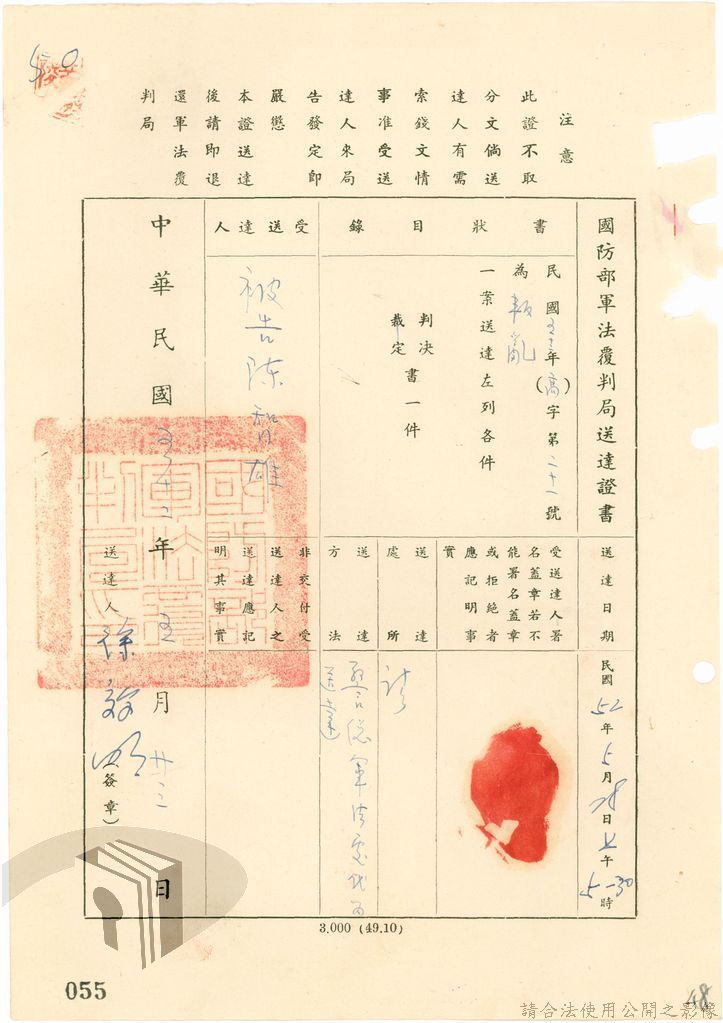 注意
此證不取
分文倘送
達人有需
索錢文情
事准受送
達人來局
告發定即
嚴懲
本證送達
後請即退
還軍法覆
判局
國防部軍法覆判局送達證書
書狀目錄
民國五十二年(高)字第二十一號
為叛亂
一案送達左列各件
判決
裁定
書一件
受送達人
被告陳智雄
送達日期
民國52年5月28日上午5-30時
受送達人署
名蓋章若不
能署名蓋章
或拒絕者
應記明事
實
送達處所
送達方法
警總軍法處代為
送達
非交付受
送達人之
送達應記
明其事實
中華民國五十二年五月廿三日
送達人
(簽章)
3,000 (49.10)
055
48
請合法使用公開之影像